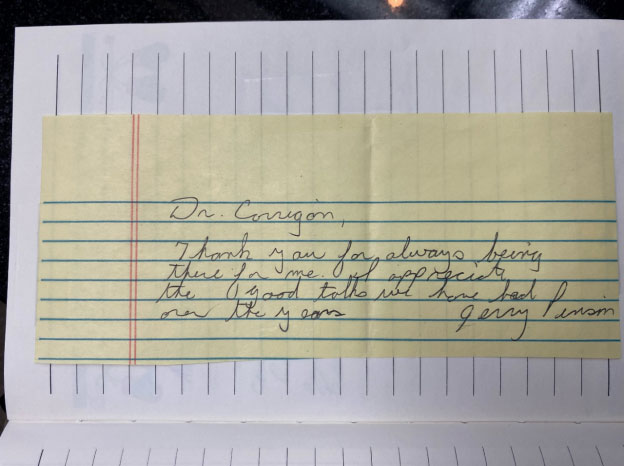 Dr. Corrigan,
Thank you for always being
there for me. I appreciate
the good talks we have had
over the years Gerry Pinson